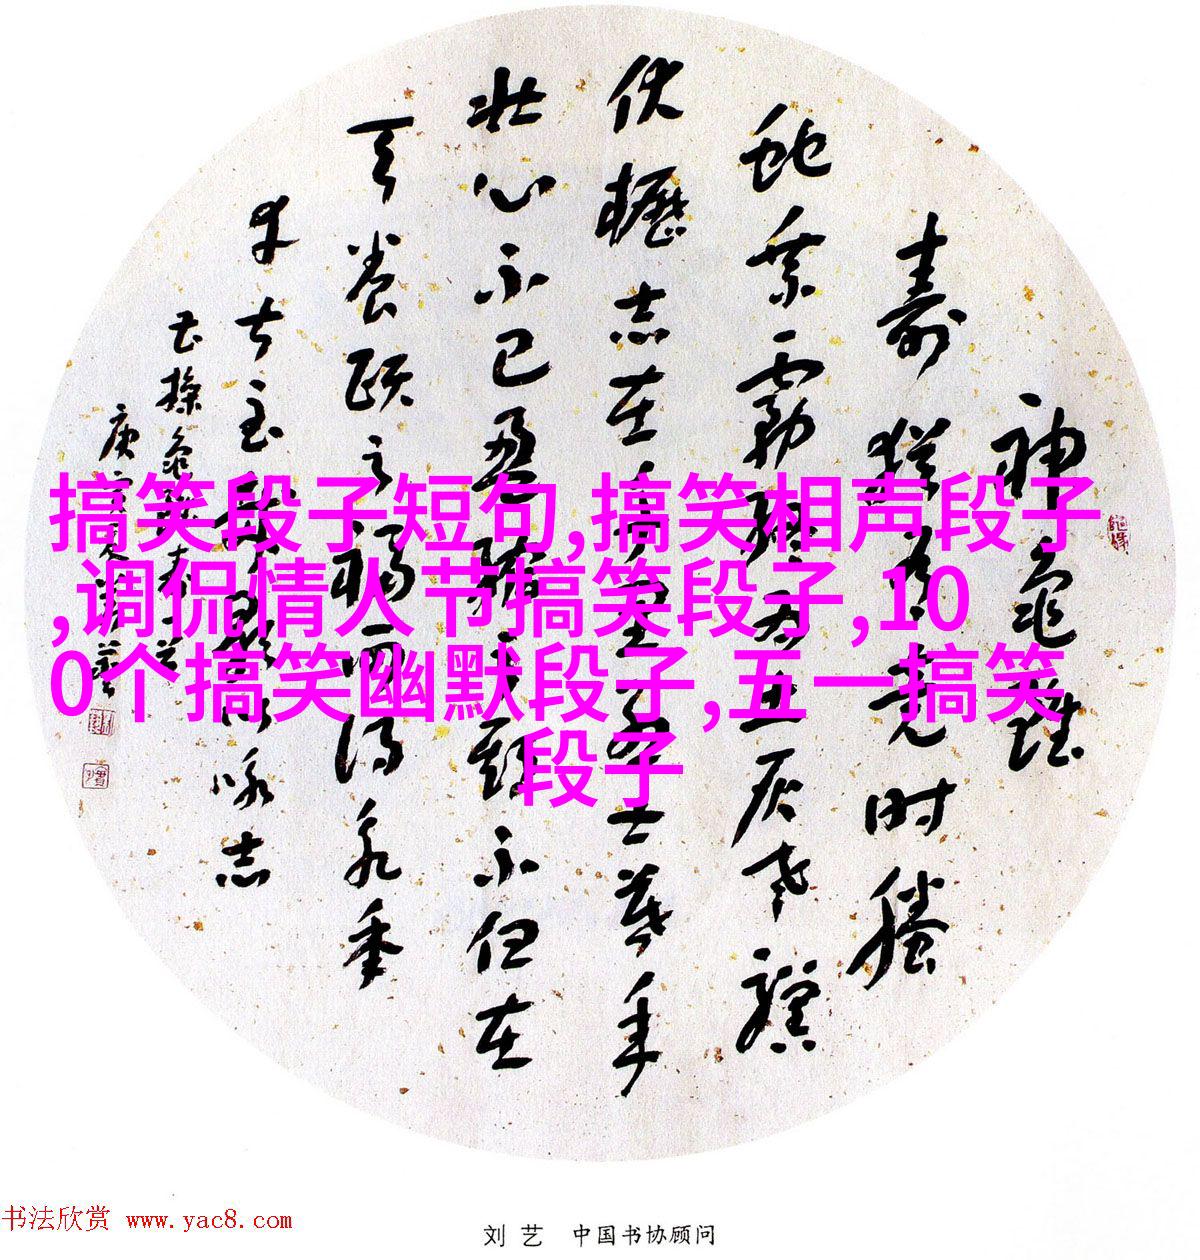 搞笑段子短句,搞笑相声段子
,调侃情人节搞笑段子,10
0个搞笑幽默段子,五一搞笑
段子
神龜雖
壽猶有竟時騰
蛇乘霧終為土灰老驥
伏櫪志在千里烈士暮年
壯心不已盈縮之期不但在
天養頤之福可得永年
幸甚至哉歌以詠志
曹操龜雖壽
书法欣赏 www.yac8.com
刘艺 中国书协顾问